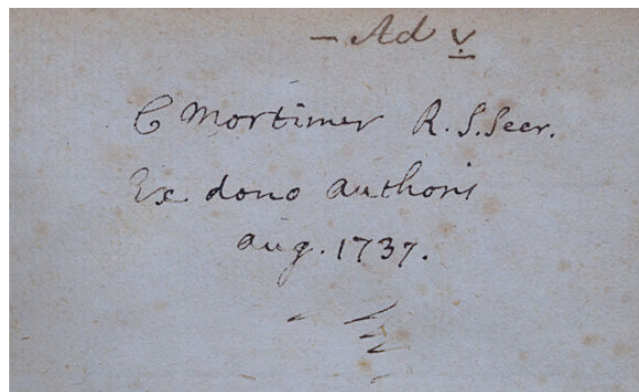 — Ad v.
C Mortimer R. S. Secr.
Ex dono authoris
aug. 1737.